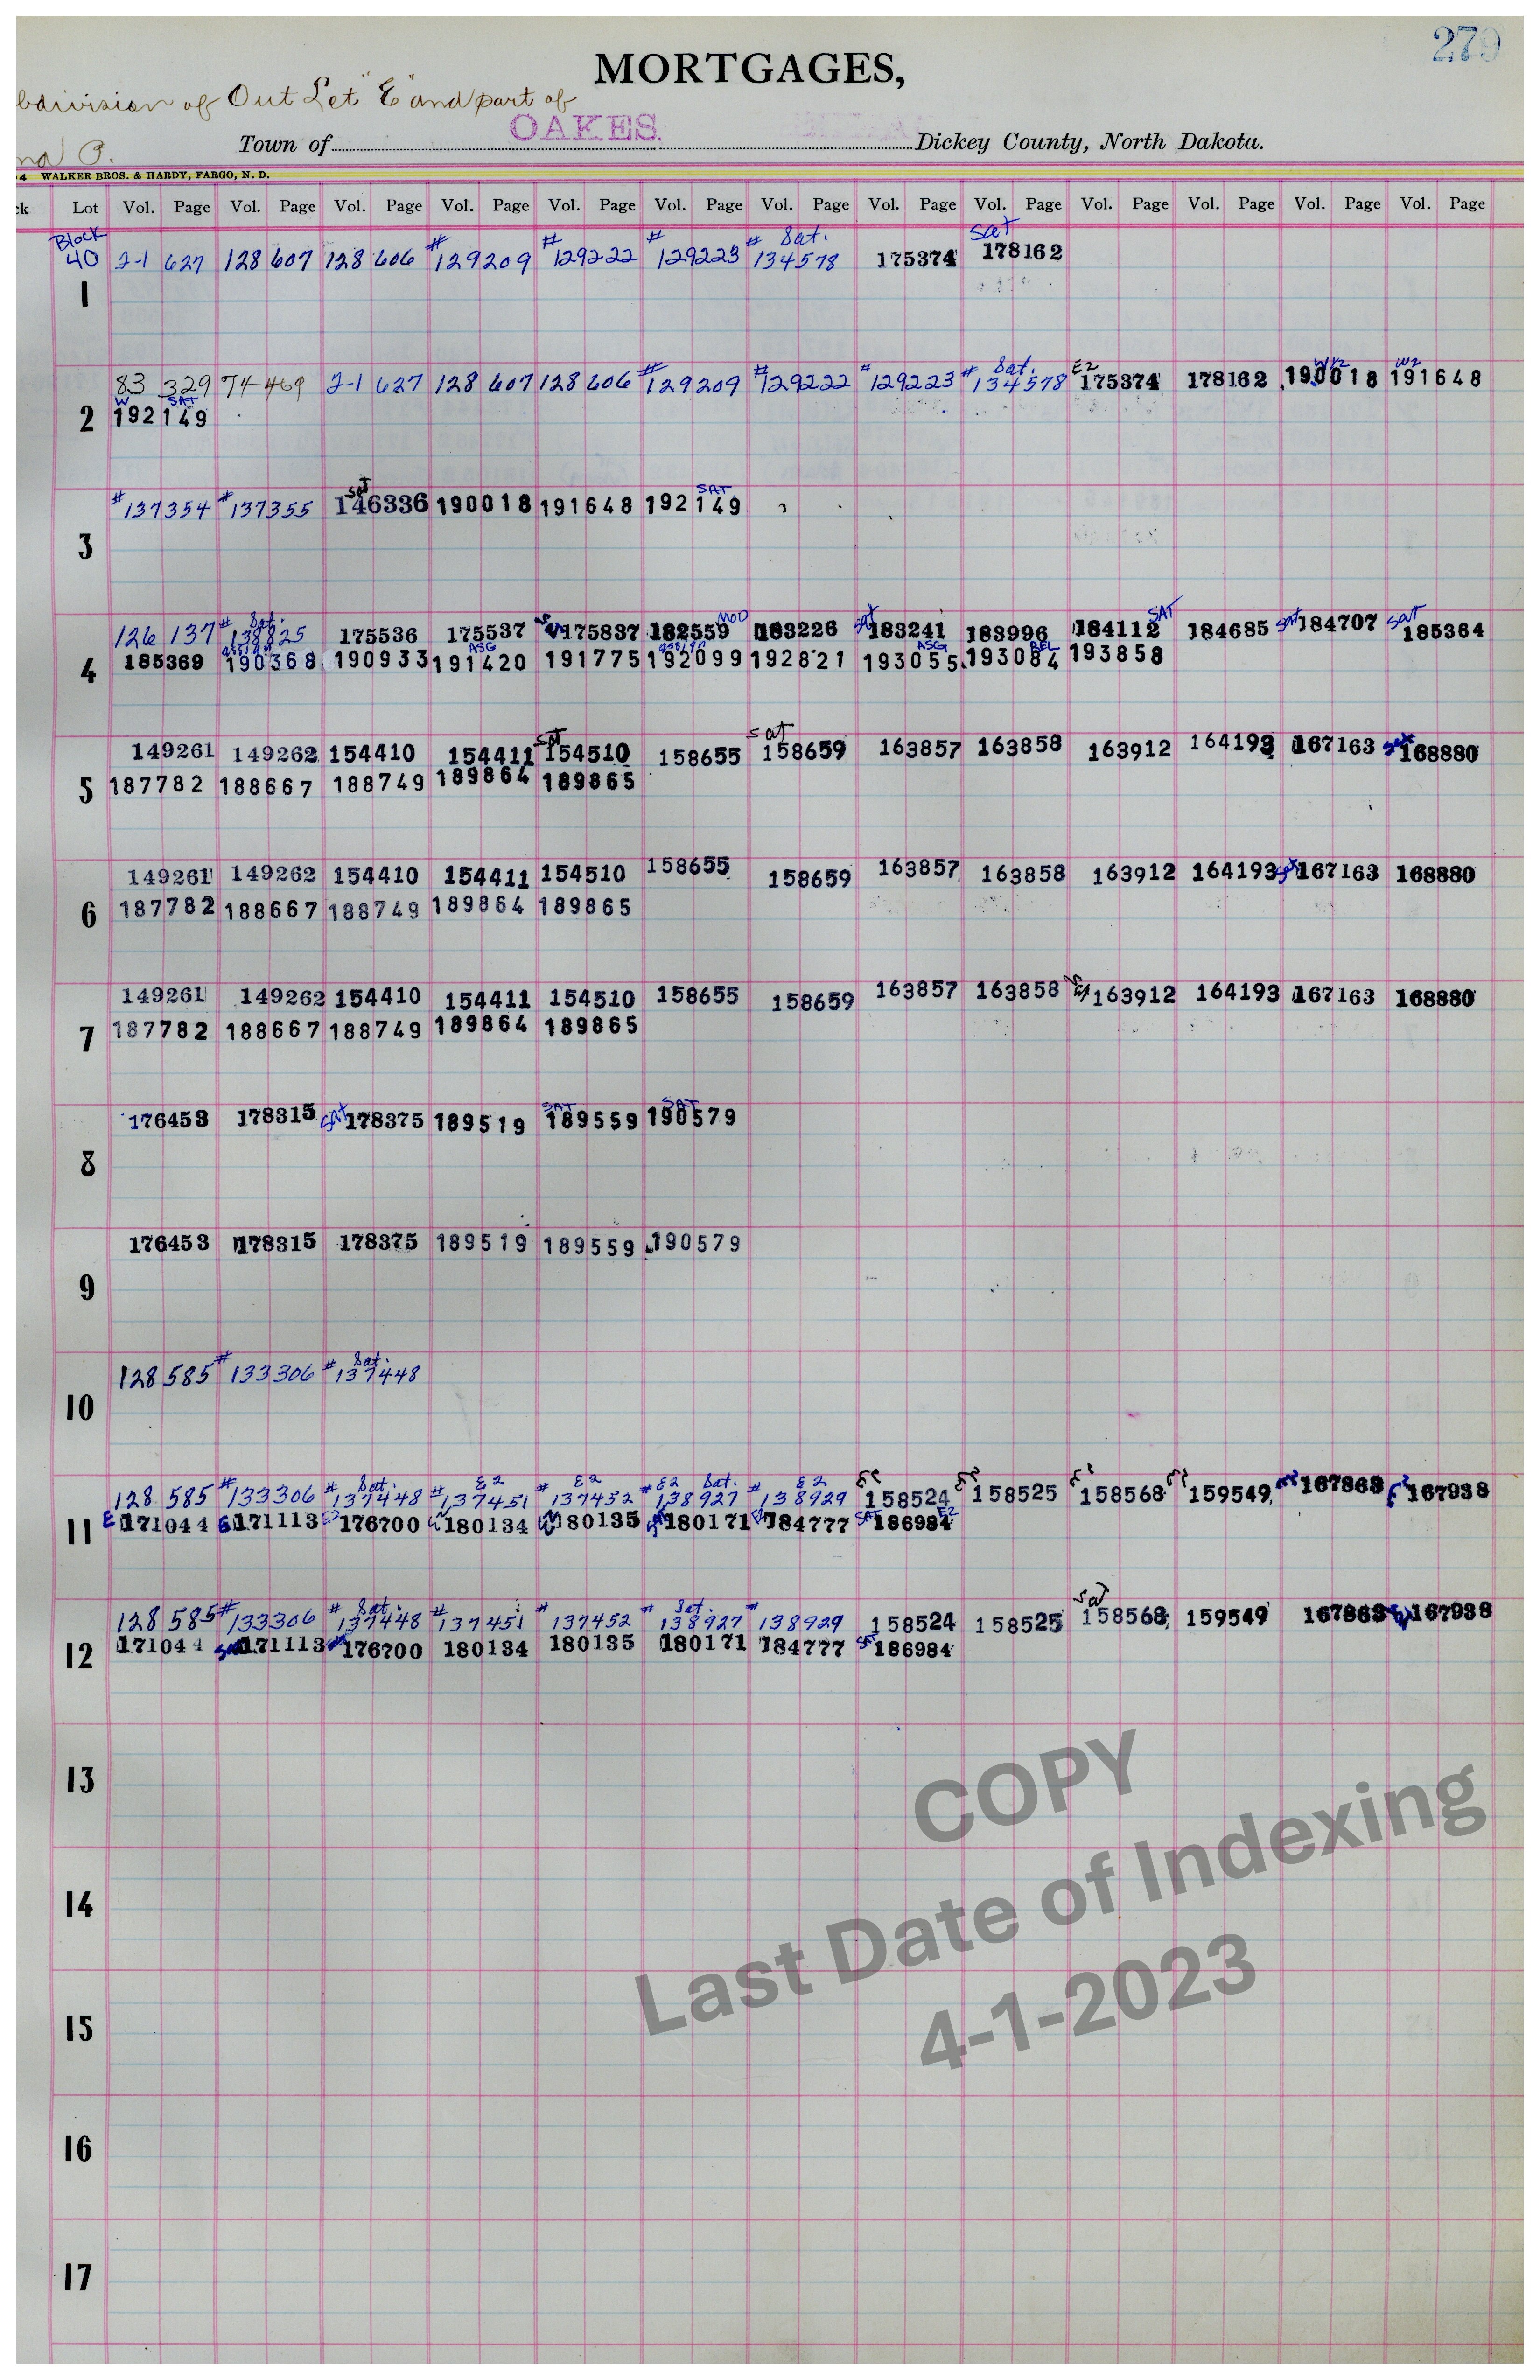 279
MORTGAGES,
bdivision of Out Let "E" and part of
Town of OAKES. Dickey County, North Dakota.
nd P.
4 WALKER BROS. & HARDY, FARGO, N. D.
ck Lot Vol. Page Vol. Page Vol. Page Vol. Page Vol. Page Vol. Page Vol. Page Vol. Page Vol. Page Vol. Page Vol. Page Vol. Page Vol. Page
Block Sat. Sat
40 2-1 627 128 607 128 606 #129209 #129222 #129223 #134578 175374 178162
1
Sat. E2 W½ W2
83 329 74-469 2-1 627 128 607 128 606 #129209 #129222 #129223 #134578 175374 178162 190018 191648
W SAT
2 192149
Sat SAT
#137354 #137355 146336 190018 191648 192149
3
Sat. MOD Sat SAT Sat Sat
126 137 #138825 175536 175537 175837 182559 183226 183241 183996 184112 184685 184707 185364
assign ASG assign ASG REL
4 185369 190368 190933 191420 191775 192099 192821 193055 193084 193858
Sat Sat Sat
149261 149262 154410 154411 154510 158655 158659 163857 163858 163912 164193 167163 168880
5 187782 188667 188749 189864 189865
149261 149262 154410 154411 154510 158655 158659 163857 163858 163912 164193 Sat 167163 168880
6 187782 188667 188749 189864 189865
149261 149262 154410 154411 154510 158655 158659 163857 163858 163912 164193 167163 168880
7 187782 188667 188749 189864 189865
Sat SAT SAT
176453 178315 178375 189519 189559 190579
8
176453 178315 178375 189519 189559 190579
9
Sat.
128 585 #133306 #137448
10
Sat. E2 E2 E2 Sat. E2
128 585 #133306 #137448 #137451 #137452 #138927 #138929 158524 158525 158568 159549 167863 167938
11 171044 171113 E2 176700 180134 180135 180171 184777 SAT 186984 E2
Sat. Sat. Sat
128 585 #133306 #137448 #137451 #137452 #138927 #138929 158524 158525 158568 159549 167863 167938
12 171044 171113 176700 180134 180135 180171 184777 186984
13
14
15
16
17
COPY
Last Date of Indexing
4-1-2023